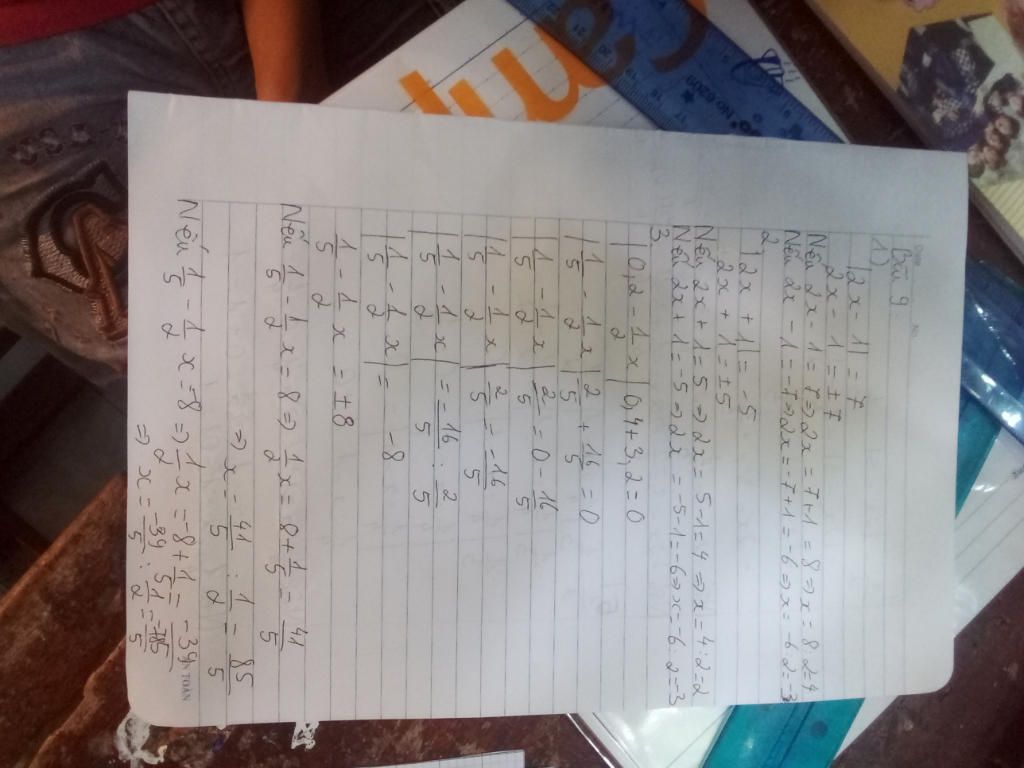 Bài 9
1)
|2x - 1| = 7
2x - 1 = ±7
Nếu 2x - 1 = 7 => 2x = 7+1 = 8 => x = 8:2=4
Nếu 2x - 1 = -7 => 2x = -7+1 = -6 => x = -6:2=-3
2
|2x + 1| = -5
2x + 1 = ±5
Nếu 2x + 1 = 5 => 2x = 5-1 = 4 => x = 4:2=2
Nếu 2x + 1 = -5 => 2x = -5-1 = -6 => x = -6:2=-3
3.
|0,2 - 1/2 x| 0,4+3,2=0
|1/5 - 1/2 x| 2/5 + 16/5 = 0
|1/5 - 1/2 x| 2/5 = 0 - 16/5
|1/5 - 1/2 x| 2/5 = -16/5
|1/5 - 1/2 x| = -16/5 : 2/5
|1/5 - 1/2 x| = -8
1/5 - 1/2 x = ±8
Nếu 1/5 - 1/2 x = 8 => 1/2 x = 8 + 1/5 = 41/5
=> x = 41/5 : 1/2 = 85/5
Nếu 1/5 - 1/2 x = -8 => 1/2 x = -8 + 1/5 = -39/5
=> x = -39/5 : 1/2 =
TOÁN